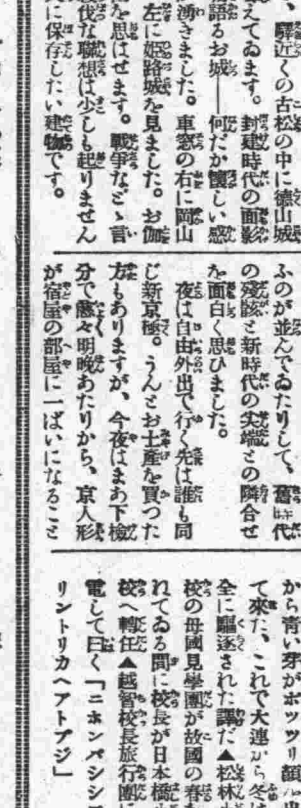 、驛近くの古松の中に德山城
えてゐます。封建時代の面影
語るお城――何だか懷しい感
湧きました。車窓の右に岡山
左に姫路城を見ました。お伽
を思はせます。戰爭などゝ言
伐な聯想は少しも起りません
に保存したい建物です。
ふのが並んでゐたりして、舊時代
の殘骸と新時代の尖端との隣合せ
を面白く思ひました。
夜は自由外出で行く先は誰も同
じ新京極。うんとお土産を買つた
方もありますが、今夜はまあ下檢
分で愈々明晩あたりから、京人形
が宿屋の部屋に一ぱいになること
から靑い芽がポッツリ顏
て來た、これで大連から冬
全に驅逐された譯だ▲松林
校の母國見學團が故國の春
れてゐる間に校長が日本橋
校へ轉任▲越智校長旅行團に
電して曰く「ニホンバシシ
リントリカヘアトブジ」